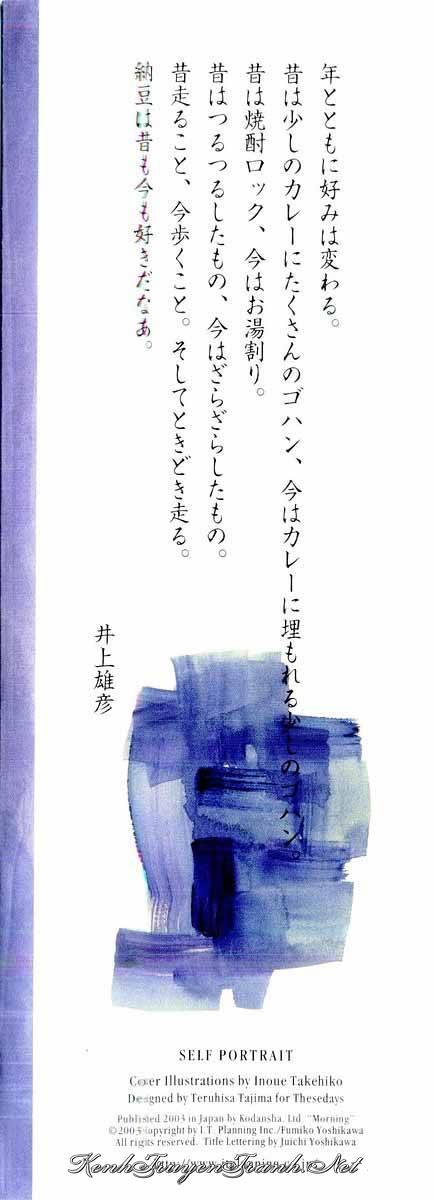 年とともに好みは変わる。
昔は少しのカレーにたくさんのゴハン、今はカレーに埋もれる少しのゴハン。
昔は焼酎ロック、今はお湯割り。
昔はつるつるしたもの、今はざらざらしたもの。
昔走ること、今歩くこと。そしてときどき走る。
納豆は昔も今も好きだなあ。
井上雄彦
SELF PORTRAIT
Cover Illustrations by Inoue Takehiko
Designed by Teruhisa Tajima for Thesedays
Published 2003 in Japan by Kodansha, Ltd. "Morning"
©2003 Copyright by I.T. Planning Inc./Fumiko Yoshikawa
All rights reserved. Title Lettering by Juichi Yoshikawa
KenhTruyenTranh.Net